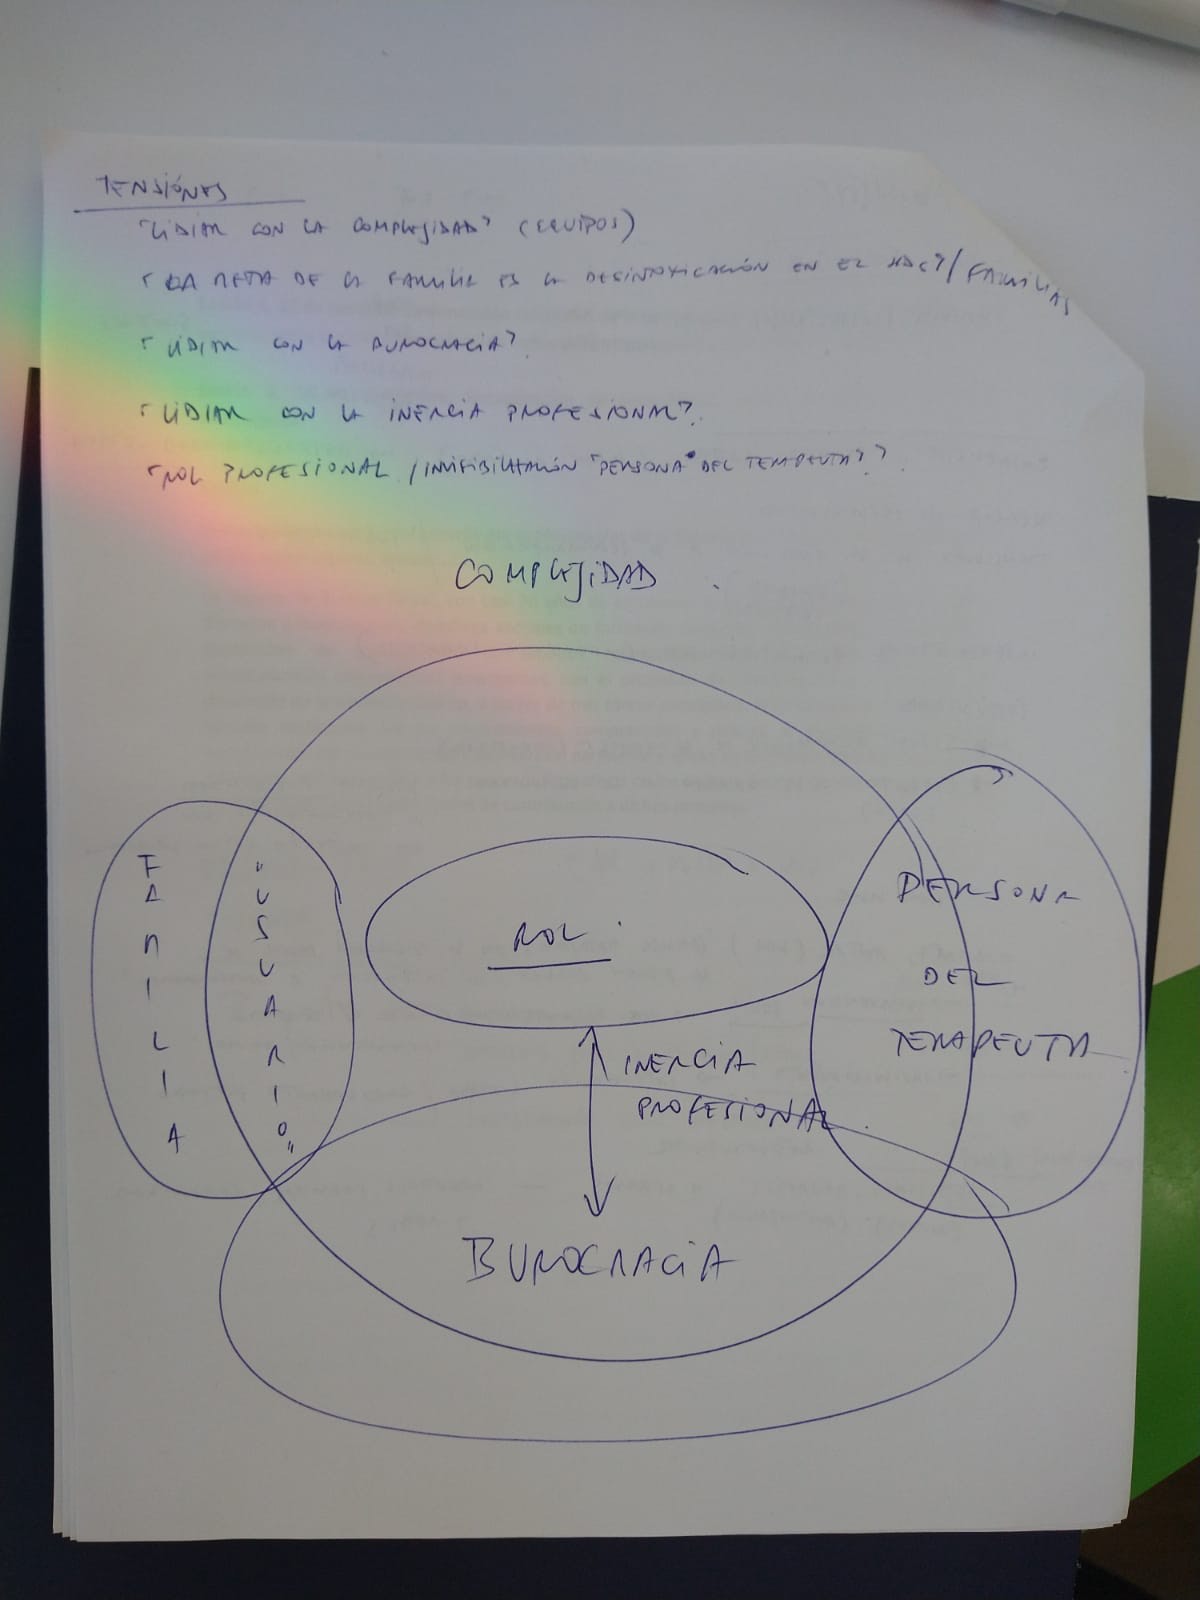 TENSIÓNES
"LIDIAR CON LA COMPLEJIDAD" (EQUIPOS)
"LA META DE LA FAMILIA ES LA DESINTOXICACIÓN EN EL / FAMILIAS
"LIDIAR CON LA BUROCRACIA".
"LIDIAR CON LA INERCIA PROFESIONAL".
"ROL PROFESIONAL / INVISIBILIZACIÓN "PERSONA" DEL TERAPEUTA".
COMPLEJIDAD
FAMILIA
"USUARIO"
ROL
PERSONA
DEL
TERAPEUTA
INERCIA
PROFESIONAL
BUROCRACIA